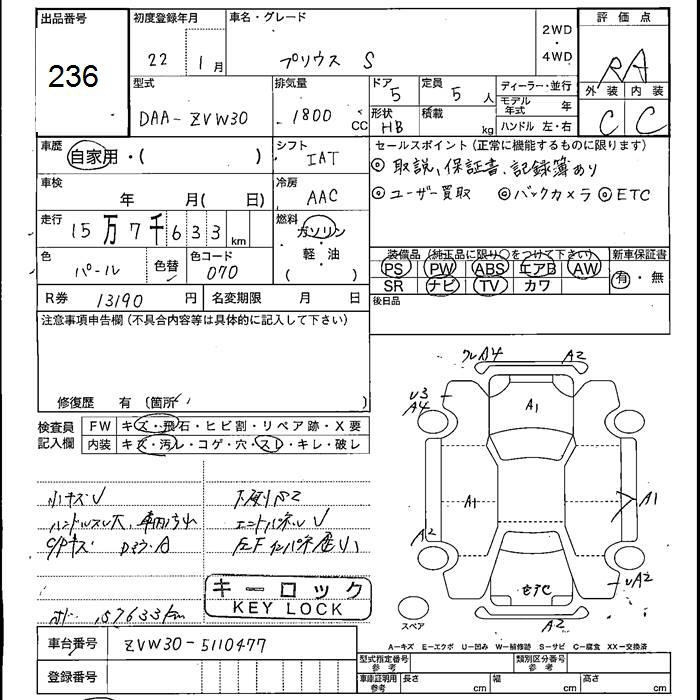 出品番号
236
初度登録年月
22 1月
車名・グレード
プリウス S
2WD・4WD
評価点
RA
外装 内装
C C
型式
DAA-ZVW30
排気量
1800 CC
ドア 5
形状 HB
定員 5 人
積載 kg
ディーラー・並行
モデル年式 年
ハンドル 左・右
車歴
自家用・( )
シフト
IAT
セールスポイント(正常に機能するものに限ります)
◎取説、保証書、記録簿あり
◎ユーザー買取 ◎バックカメラ ◎ETC
車検
年 月( 日)
冷房
AAC
走行
15万7千633 km
燃料
ガソリン
軽・油
( )
色
パール
色替
色コード
070
装備品(純正品に限り○をつけて下さい)
PS PW ABS エアB AW
SR ナビ TV カワ
新車保証書
有・無
R券 13190 円
名変期限 月 日
後日品
注意事項申告欄(不具合内容等は具体的に記入して下さい)
修復歴 有 (箇所 )
検査員記入欄
FW キズ・飛石・ヒビ割・リペア跡・X要
内装 キズ・汚レ・コゲ・穴・スレ・キレ・破レ
小キズU
ハンドルスレ大、車内汚れ
C/Pキズ
キーロック
KEY LOCK
157633km
クレA4 A2
U3
A4
A1
A1
A1
A2
UA2
A2
スペア
A-キズ E-エクボ U-凹み W-補修跡 S-サビ C-腐食 XX-交換済
車台番号 ZVW30-5110477
登録番号
参考
型式指定番号 参考
類別区分番号 参考
車庫証明用参考 長さ cm 幅 cm 高さ cm